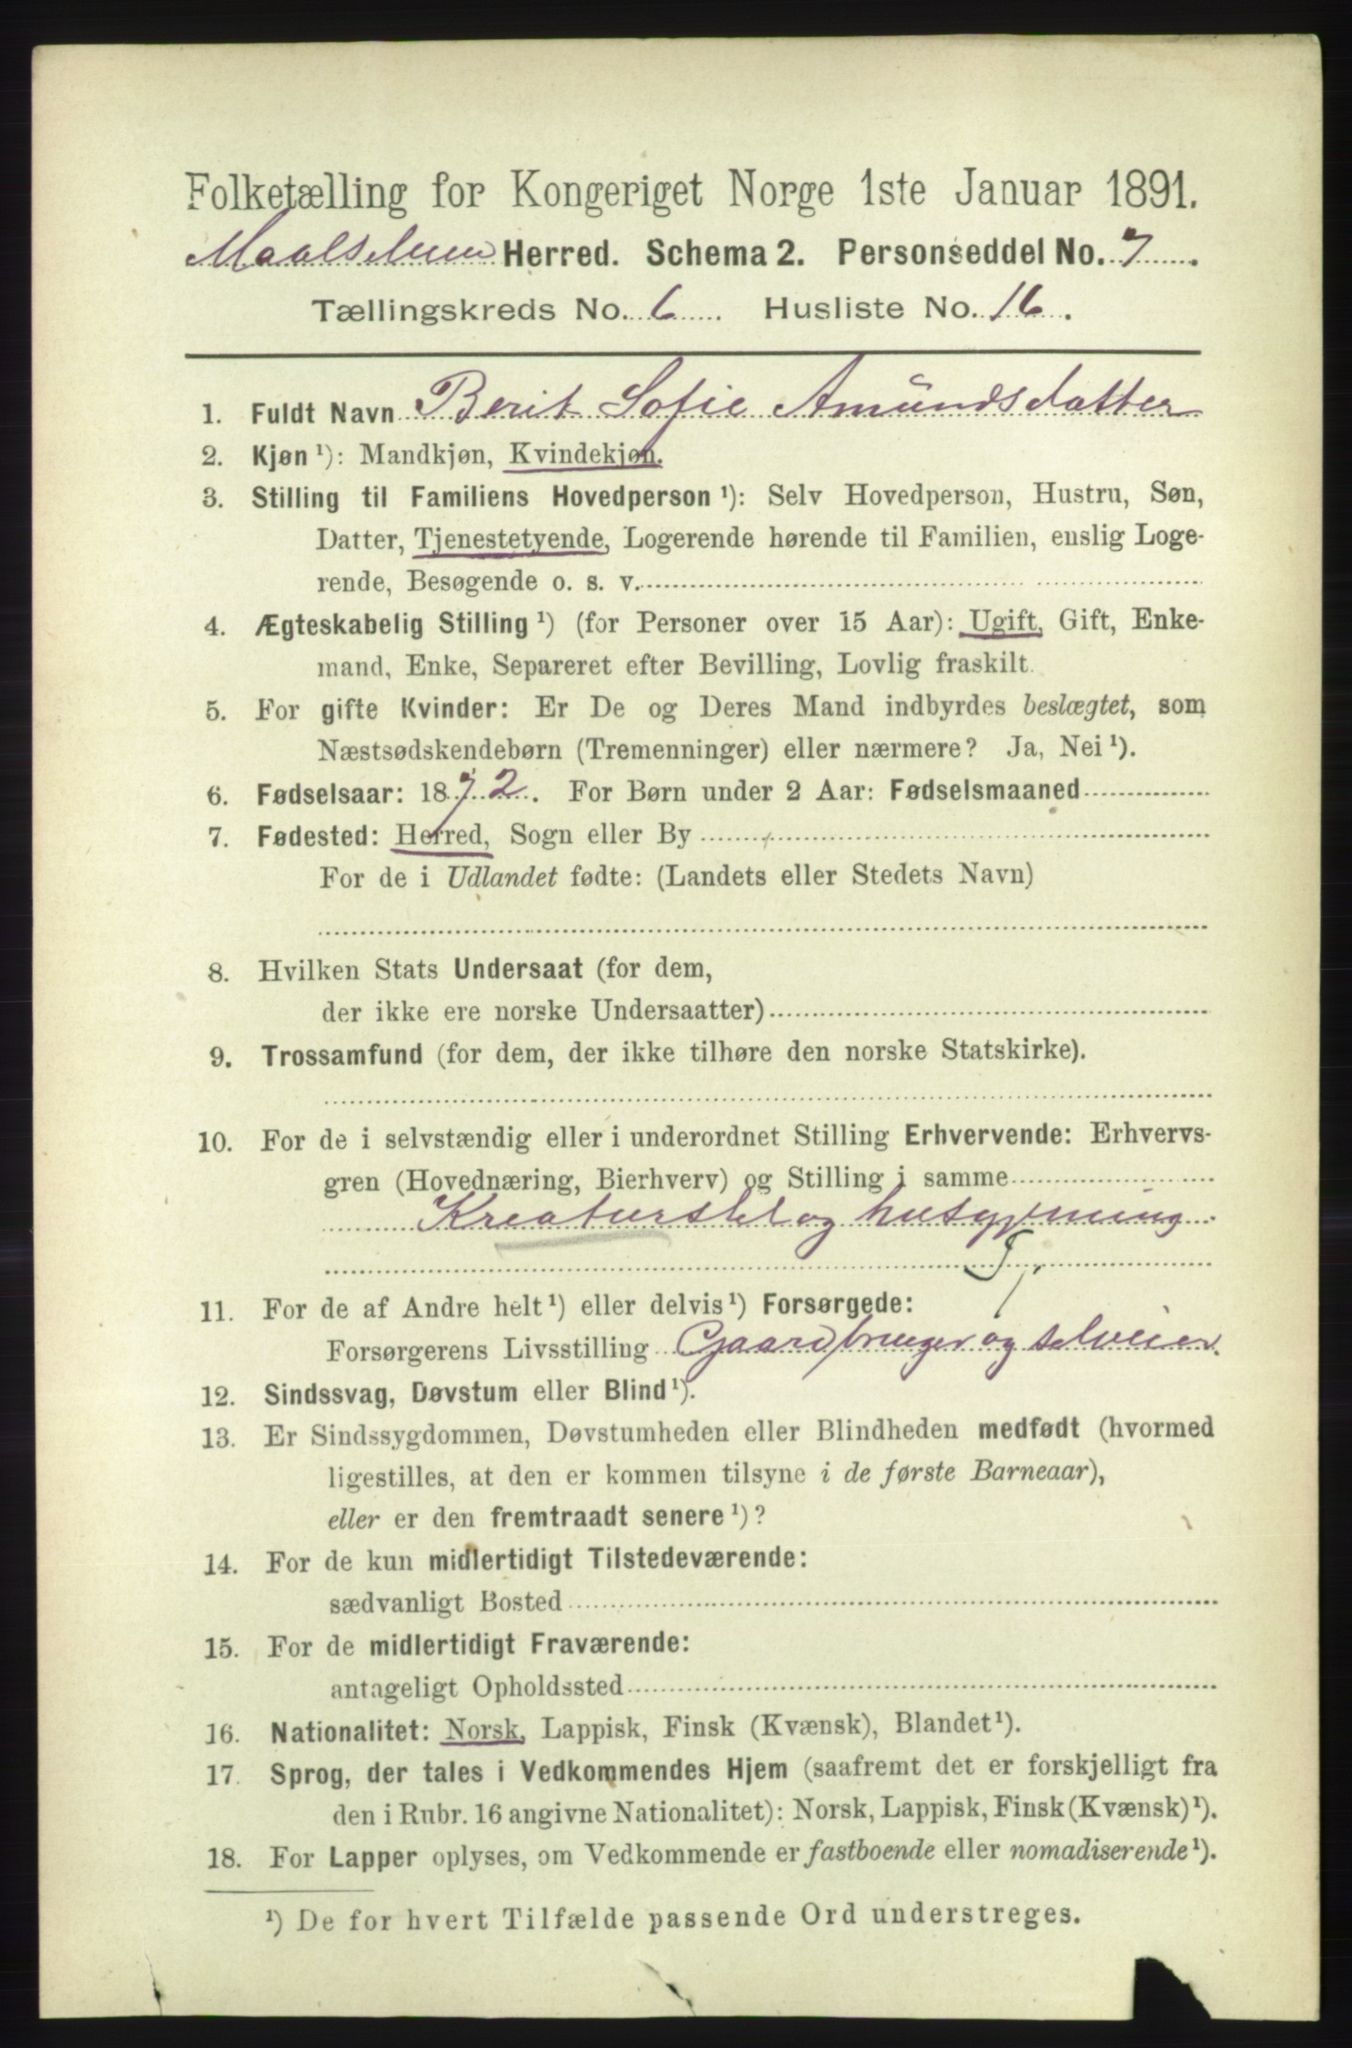 Folketælling for Kongeriget Norge 1ste Januar 1891.
Maalselven Herred. Schema 2. Personseddel No. 7
Tællingskreds No. 6 Husliste No. 16.
1. Fuldt Navn Berit Sofie Amundsdatter
2. Kjøn¹): Mandkjøn, Kvindekjøn.
3. Stilling til Familiens Hovedperson¹): Selv Hovedperson, Hustru, Søn,
Datter, Tjenestetyende, Logerende hørende til Familien, enslig Loge-
rende, Besøgende o. s. v.
4. Ægteskabelig Stilling¹) (for Personer over 15 Aar): Ugift, Gift, Enke-
mand, Enke, Separeret efter Bevilling, Lovlig fraskilt.
5. For gifte Kvinder: Er De og Deres Mand indbyrdes beslægtet, som
Næstsødskendebørn (Tremenninger) eller nærmere? Ja, Nei¹).
6. Fødselsaar: 1872. For Børn under 2 Aar: Fødselsmaaned
7. Fødested: Herred, Sogn eller By
For de i Udlandet fødte: (Landets eller Stedets Navn)
8. Hvilken Stats Undersaat (for dem,
der ikke ere norske Undersaatter)
9. Trossamfund (for dem, der ikke tilhøre den norske Statskirke).
10. For de i selvstændig eller i underordnet Stilling Erhvervende: Erhvervs-
gren (Hovednæring, Bierhverv) og Stilling i samme
Kreaturstel og husgjerning
T,
11. For de af Andre helt¹) eller delvis¹) Forsørgede:
Forsørgerens Livsstilling Gaardbruger og selveier.
12. Sindssvag, Døvstum eller Blind¹).
13. Er Sindssygdommen, Døvstumheden eller Blindheden medfødt (hvormed
ligestilles, at den er kommen tilsyne i de første Barneaar),
eller er den fremtraadt senere¹)?
14. For de kun midlertidigt Tilstedeværende:
sædvanligt Bosted
15. For de midlertidigt Fraværende:
antageligt Opholdssted
16. Nationalitet: Norsk, Lappisk, Finsk (Kvænsk), Blandet¹).
17. Sprog, der tales i Vedkommendes Hjem (saafremt det er forskjelligt fra
den i Rubr. 16 angivne Nationalitet): Norsk, Lappisk, Finsk (Kvænsk)¹).
18. For Lapper oplyses, om Vedkommende er fastboende eller nomadiserende¹).
¹) De for hvert Tilfælde passende Ord understreges.